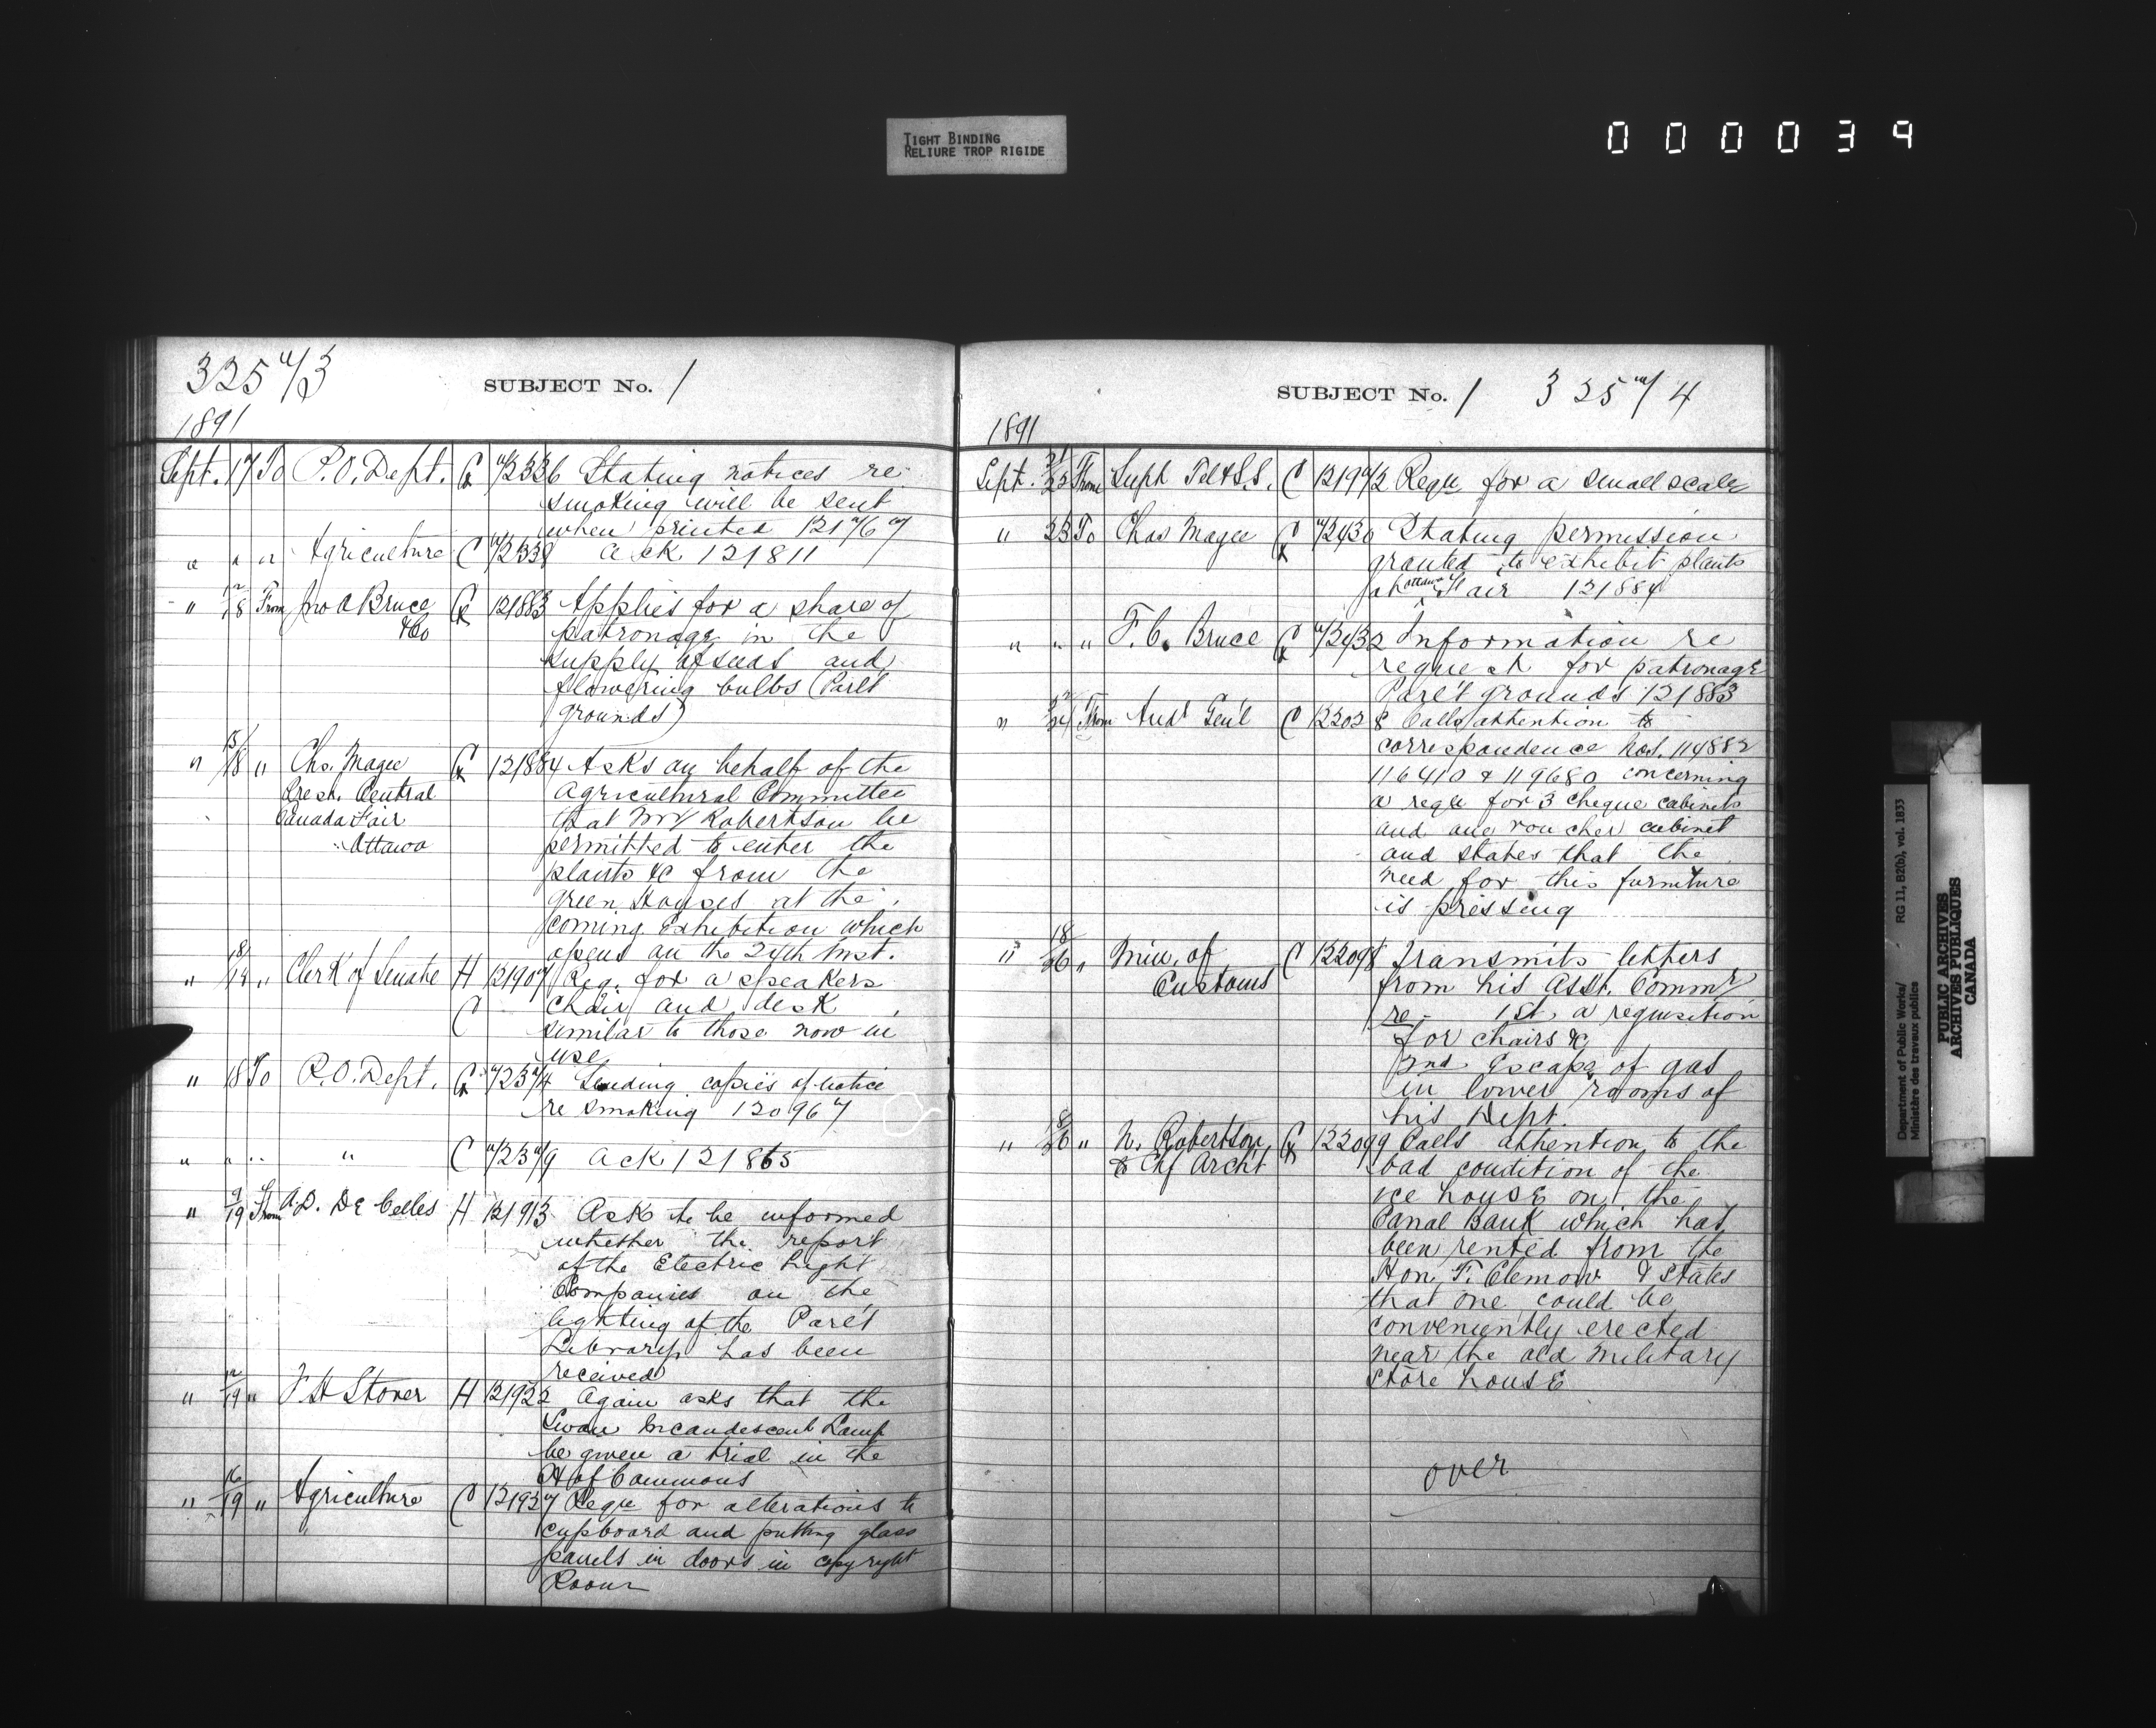 TIGHT BINDING
RELIURE TROP RIGIDE
000039
325 a/3
SUBJECT No. 1
1891
Sept. 17 To P.O. Dept. Stating notices re
smoking will be sent
when printed
" " " Agriculture C Ack 121811
" 12/18 From Jno A Bruce 121883 Applies for a share of
&Co patronage in the
supply of seeds and
flowering bulbs (Parl't
grounds)
" 15/18 " Chs. Magee 121884 Asks on behalf of the
Prest. Central Agricultural Committee
Canada Fair that Mr Robertson be
Ottawa permitted to enter the
plants &c from the
green Houses at the
coming Exhibition which
opens on the 24th inst.
" 18/18 " Clerk of Senate H 121907 Req. for a speakers
C chair and desk
similar to those now in
use
" 18 To P.O. Dept. Sending copies of notice
re smoking 120967
" " " " C Ack 121865
" 9/19 From A.D. De Celles H 121913 Ask to be informed
whether the report
of the Electric Light
Companies on the
lighting of the Parl't
Library has been
received
" 12/19 " H Stover H 121922 Again asks that the
Swan Incandescent Lamp
be given a trial in the
H of Commons
" 16/19 " Agriculture C 121927 Requ for alterations to
cupboard and putting glass
panels in doors in copyright
Room
SUBJECT No. 1 325 a/4
1891
Sept. 21/23 From Supt Tel & S.S. C 121972 Requ for a small scale
" 23 To Chas Magee Stating permission
granted to exhibit plants
at Ottawa Fair 121884
" " " F. C. Bruce Information re
request for patronage
Parl't grounds 121883
" From Aud' Gen'l C 122028 Calls attention to
correspondence Nos. 114882
116410 & 119680 concerning
a requ for 3 cheque cabinets
and one voucher cabinet
and states that the
need for this furniture
is pressing
" 18/26 " Min. of C 122098 Transmits letters
Customs from his Asst. Commr
re 1st, a requisition
for chairs &c
2nd Escape of gas
in lower rooms of
his Dept.
" 18/26 " N. Robertson 122099 Calls attention to the
to Chf Archt bad condition of the
ice house on the
Canal Bank which has
been rented from the
Hon. F. Clemow & states
that one could be
conveniently erected
near the old military
store house
over
Department of Public Works/ RG 11, B2(b), vol. 1833
Ministère des travaux publics
PUBLIC ARCHIVES
ARCHIVES PUBLIQUES
CANADA